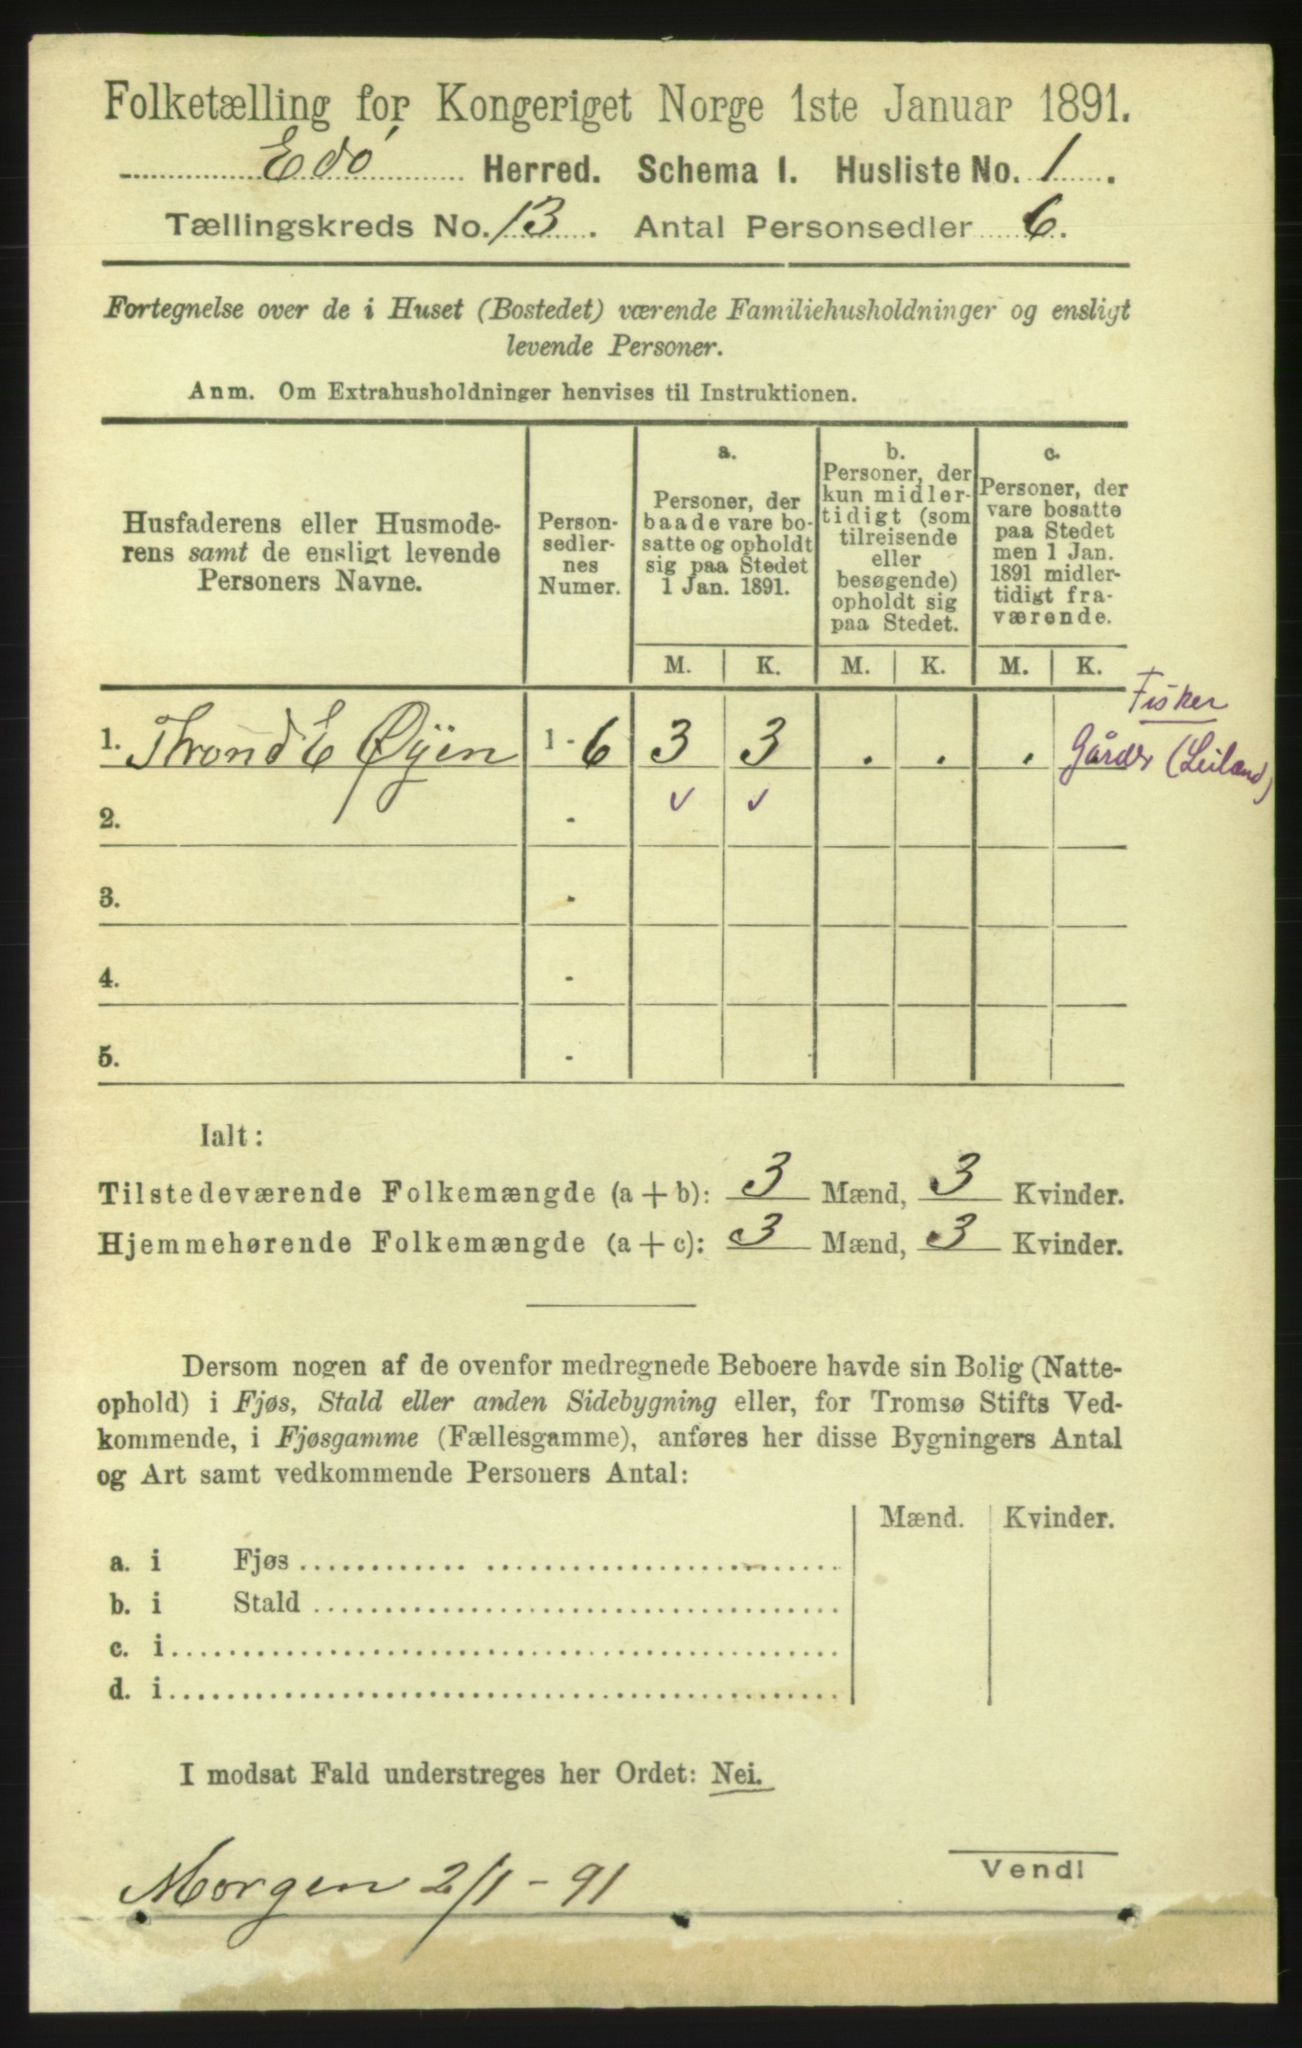 Folketælling for Kongeriget Norge 1ste Januar 1891.
Edö Herred. Schema I. Husliste No. 1.
Tællingskreds No. 13. Antal Personsedler 6.
Fortegnelse over de i Huset (Bostedet) værende Familiehusholdninger og ensligt
levende Personer.
Anm. Om Extrahusholdninger henvises til Instruktionen.
Husfaderens eller Husmode-
rens samt de ensligt levende
Personers Navne.
Person-
sedler-
nes
Numer.
a.
Personer, der
baade vare bo-
satte og opholdt
sig paa Stedet
1 Jan. 1891.
b.
Personer, der
kun midler-
tidigt (som
tilreisende
eller
besøgende)
opholdt sig
paa Stedet.
c.
Personer, der
vare bosatte
paa Stedet
men 1 Jan.
1891 midler-
tidigt fra-
værende.
M. K. M. K. M. K.
Fisker
1. Thrond E Øyen 1 - 6 3 3 . . . Gårdbr (Leiland)
2. - v v
3. -
4. -
5. -
Ialt:
Tilstedeværende Folkemængde (a + b): 3 Mænd, 3 Kvinder.
Hjemmehørende Folkemængde (a + c): 3 Mænd, 3 Kvinder.
Dersom nogen af de ovenfor medregnede Beboere havde sin Bolig (Natte-
ophold) i Fjøs, Stald eller anden Sidebygning eller, for Tromsø Stifts Ved-
kommende, i Fjøsgamme (Fællesgamme), anføres her disse Bygningers Antal
og Art samt vedkommende Personers Antal:
Mænd. Kvinder.
a. i Fjøs
b. i Stald
c. i
d. i
I modsat Fald understreges her Ordet: Nei.
Vend!
Morgen 2/1 - 91